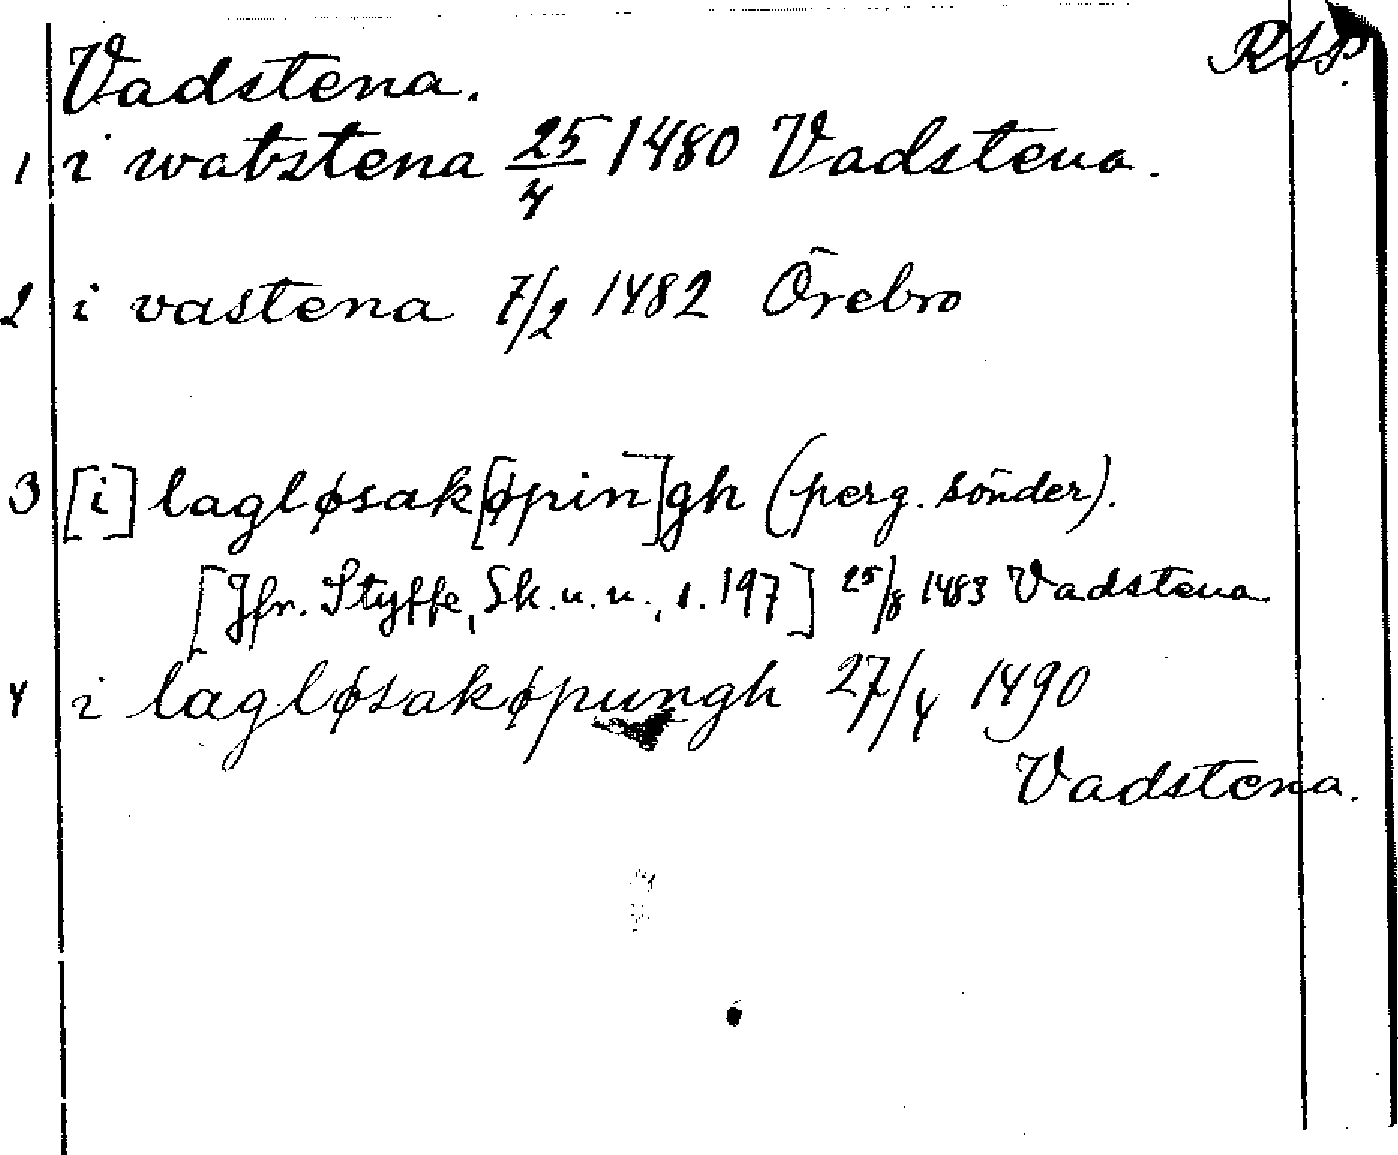 Vadstena. RAP.
1 i watstena 25/4 1480 Vadstena.
2 i vastena 7/2 1482 Örebro
3 [i] lagløsak[øpin]gh (perg. sönder).
[Jfr. Styffe, Sk. u. u., s. 197] 25/8 1483 Vadstena
4 i lagløsakøpungh 27/4 1490
Vadstena.